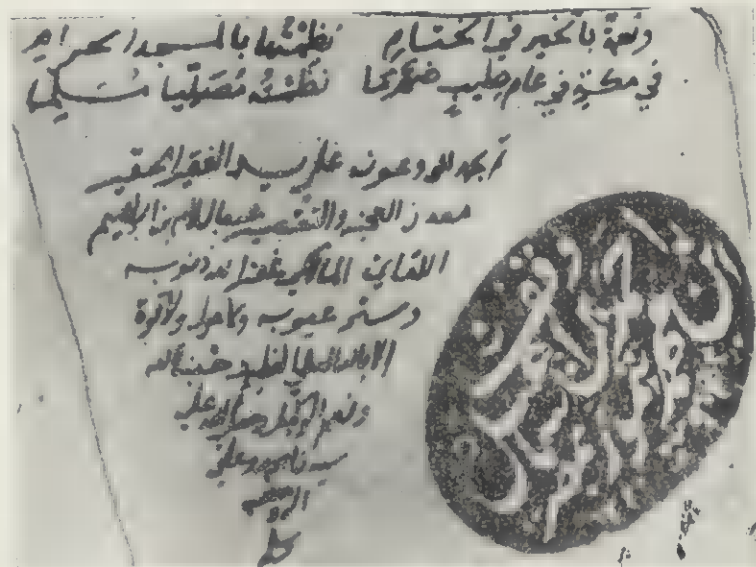 بالخير في الختام نظمتها بالمسجد الحرام
في مكة في عام نظمته مصليا مسلما
بحمد الله وعونه على يد الفقير الحقير
معدن العجز والتقصير عبد السلام بن ابراهيم
اللقاني المالكي غفر الله ذنوبه
وستر عيوبه ولا حول ولا قوة
الا بالله العلي العظيم حسبنا الله
ونعم الوكيل وصلى الله على
سيدنا محمد وعلى
اله وصحبه